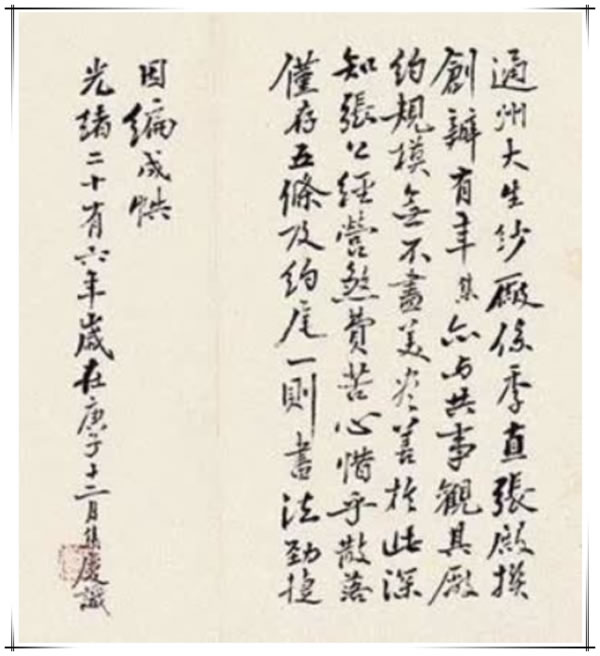 通州大生紗廠係季直張殿撰
創辦有年集亦与共事觀其厰
約規模無不盡美尽善於此深
知張公經營煞費苦心惜乎散落
僅存五條及約尾一則書法勁捷
因編成帙
光緒二十有六年歲在庚子十二月集慶識